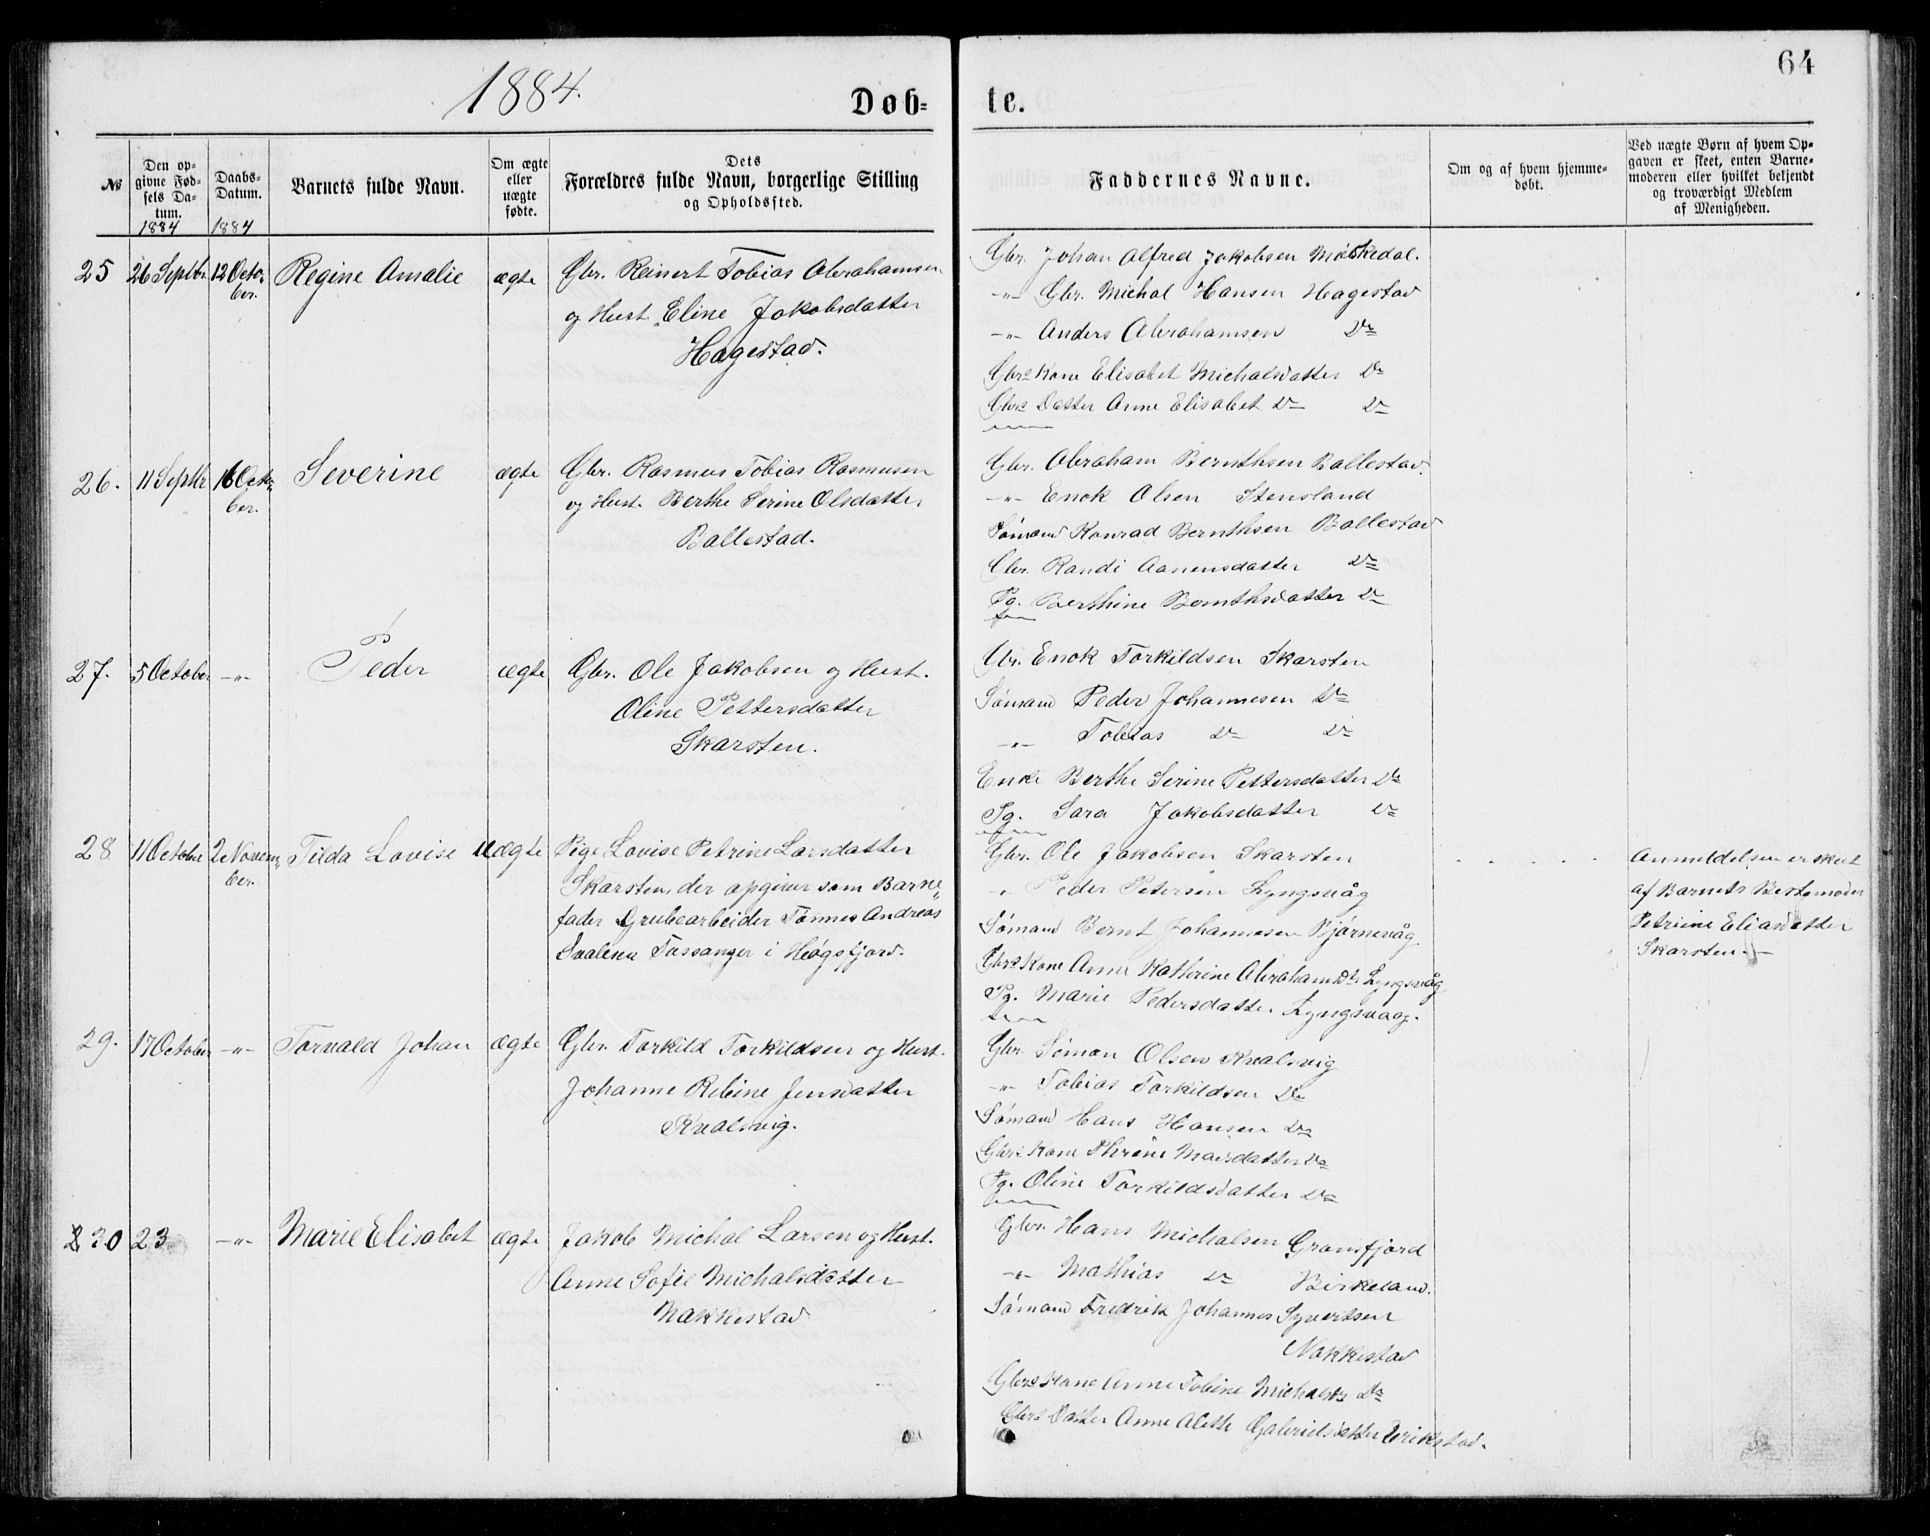 1884.
Døb-
te.
64
№
Den op-
givne Fød-
sels Da-
tum.
1884
Daabs-
Datum.
1884
Varnets fulde Navn.
Om ægte
eller
uægte
fødte.
Dets
Forældres fulde Navn, borgerlige Stilling
og Opholdssted.
Faddernes Navne.
Om og af hvem hjemme-
døbt.
Ved uægte Børn af hvem Op-
gaven er skeet, enten Barne-
moderen eller hvilket bekjendt
og troværdigt Medlem
af Menigheden.
25
26 Septbr.
12 Octo-
ber.
Regine Amalie
ægte
Gbr. Reinert Tobias Abrahamsen
og Hust. Eline Jakobsdatter
Hagestad.
Gbr. Johan Alfred Jakobsen Møskedal.
-"- Gbr. Michal Hansen Hagestad
-"- Anders Abrahamsen Do
Gbrs Kone Elisabet Michalsdatter Do
Gbrs Datter Anne Elisabet Do Do
26.
11 Septbr
16 Octo-
ber.
Severine
ægte
Gbr. Rasmus Tobias Rasmusen
og Hust. Berthe Serine Olsdatter
Ballestad.
Gbr. Abraham Bernthsen Ballestad.
-"- Enok Olsen Stensland
Sømand Konrad Bernthsen Ballestad
Gbr. Randi Aanensdatter Do
Pg. Berthine Bernthsdatter Do
27.
5 October
-"-
Peder
ægte
Gbr. Ole Jakobsen og Hust.
Oline Pettersdatter
Skarsten.
Gbr. Enok Torkildsen Skarsten
Sømand Peder Johannesen Do
-"- Tobias Do Do
Enke Berthe Serine Pettersdatter Do
Pg. Sara Jakobsdatter Do
28
11 October
2 Novem-
ber.
Tilda Lovise
uægte
Pige Lovise Petrine Larsdatter
Skarsten, der opgiver som Barne
fader Grubearbeider Tønnes Andreas
Tassanger i Høgsfjord.
Gbr. Ole Jakobsen Skarsten
" Peder Petersen Lyngsvåg
Sømand Bernt Johannesen Bjørnevåg
Gbrs Kone Anne Kathrine Abrahamsdt. Lyngsvåg
Pg. Marie Pedersdatter Lyngsvaag.
Anmeldelsen er skeet
af Barnets Bestemoder
Petrine Eliasdatter
Skarsten.-
29.
17 October
-"-
Torvald Johan
ægte
Gbr. Torkild Torkildsen og Hust.
Johanne Rebine Jensdatter
Kvalvig.
Gbr. Simon Olsen Kvalvig
-"- Tobias Torkildsen Do
Sømand Hans Hansen Do
Gbrs Kone Thrine Do
Pg. Oline Torkildsdatter Do
30
23
-"-
Marie Elisabet
ægte
Jakob Michal Larsen og Hust.
Anne Sofie Michalsdatter
Nakkestad
Gbr. Hans Michalsen Gransfjord
-"- Mathias Do Birkeland.
Sømand Fredrik Johannes Syvertsen
Nakkestad
Gbrs Kone Anne Tobine Do
Gbrs Datter Anne Alette Gabrielsdatter Erikstad.